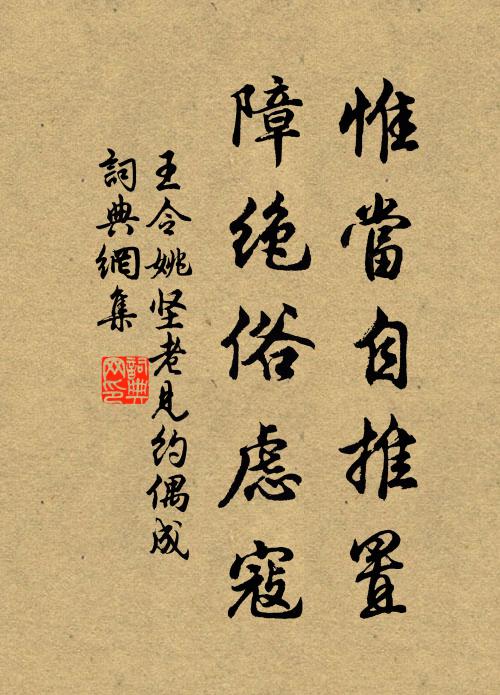 惟當自推置
障絶俗慮寇
王令姚坚老見約偶成
詞典網集
詞典
网印